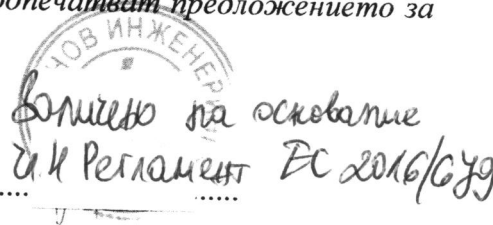 предложението за
ОВ ИНЖЕНЕР
Заличено на основание
чл. 4 Регламент ЕС 2016/679